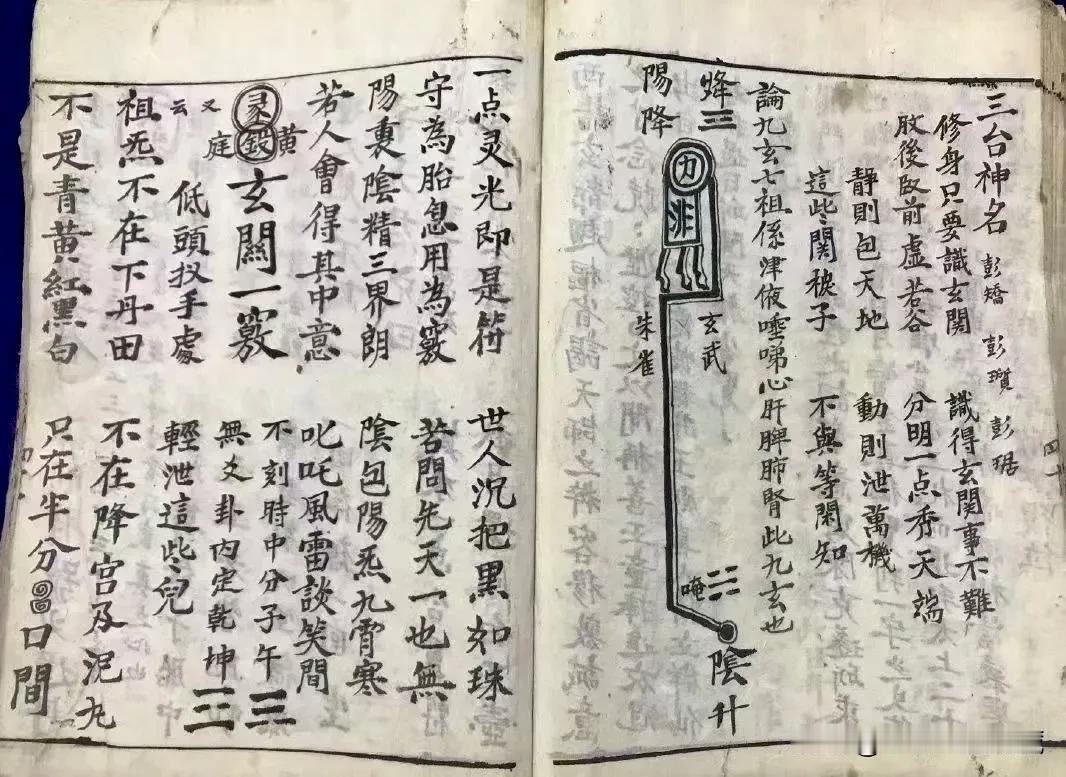 三台神名 彭矯 彭瓆 彭琚
修身只要識玄関 識得玄関事不難
放後収前虚若谷 分明一点秀天端
静則包天地 動則泄萬機
這些関梭子 不與等閑知
論九玄七祖係津液唾啼心肝脾肺腎此九玄也
烽三
陽降
力
非
玄武
朱雀
唵
陰升
一点灵光即是符 世人沉把黑如珠
守為胎息用為竅 苦問先天一也無
陽裏陰精三界朗 陰包陽炁九霄寒
若人會得其中意 叱吒風雷談笑間
灵
黄庭
又云
玄關一竅
不刻時中分子午
無爻卦内定乾坤
低頭扠手處 輕泄這些兒
祖炁不在下丹田 不在降宮及泥九
不是青黄紅黑白 只在半分口間